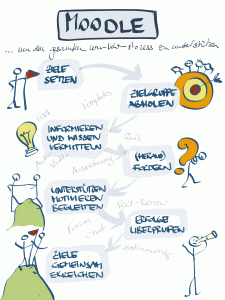 MOODLE
... um den gesamten Lern-Lehr-Prozess zu unterstützen
ZIELE
SETZEN
ZIELGRUPPE
ABHOLEN
INFORMIEREN
UND WISSEN
VERMITTELN
Video
Quiz
(HERAUS)
FORDERN
UNTERSTÜTZEN
MOTIVIEREN
BEGLEITEN
Peer-Review
Forum
Chat
ERFOLGE
ÜBERPRÜFEN
Abstimmung
ZIELE
GEMEINSAM
ERREICHEN